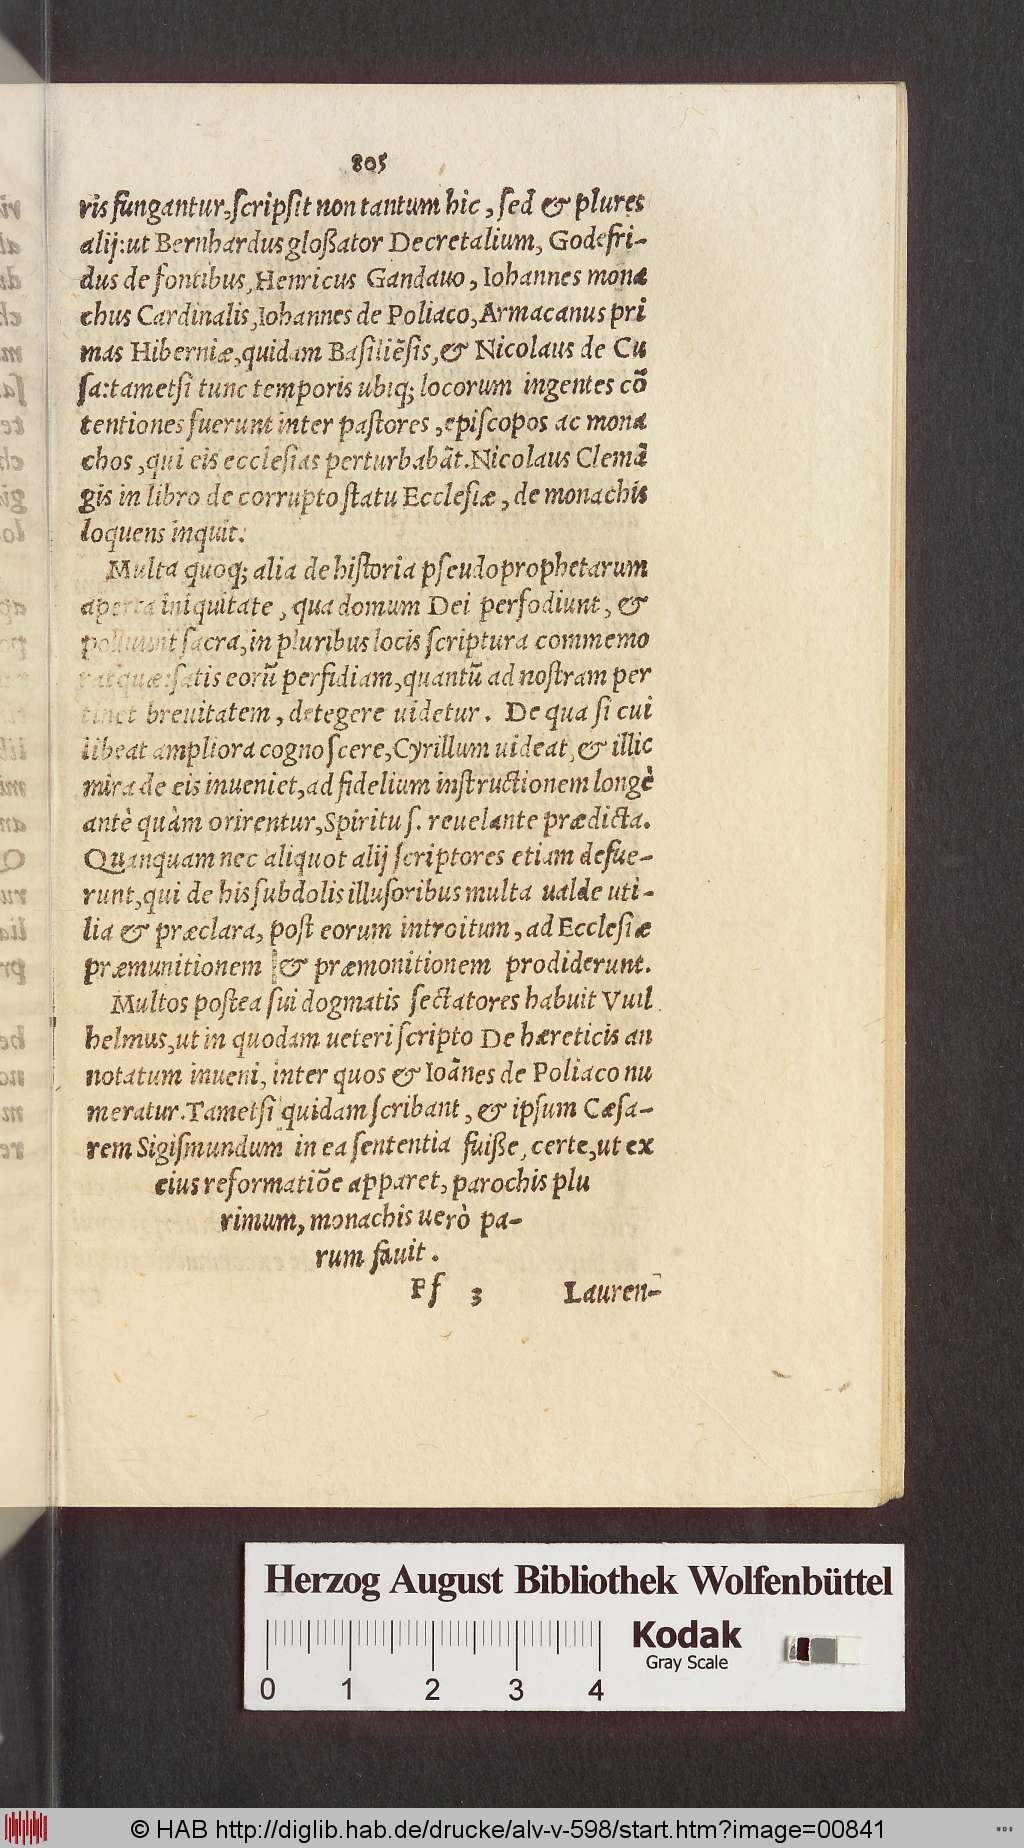 805
ris fungantur, ſcripſit non tantum hic, ſed & plures
alij: ut Bernhardus gloßator Decretalium, Godefri-
dus de fontibus, Henricus Gandauo, Iohannes mona
chus Cardinalis, Iohannes de Poliaco, Armacanus pri
mas Hiberniæ, quidam Baſiliẽſis, & Nicolaus de Cu
ſa: tametſi tunc temporis ubiq; locorum ingentes cõ
tentiones fuerunt inter paſtores, epiſcopos ac mona
chos, qui eis eccleſias perturbabãt. Nicolaus Clemã
gis in libro de corrupto ſtatu Eccleſiæ, de monachis
loquens inquit:
Multa quoq; alia de hiſtoria pſeudoprophetarum
aperta iniquitate, qua domum Dei perfodiunt, &
polluunt ſacra, in pluribus locis ſcriptura commemo
rat quæ: ſatis eorũ perfidiam, quantũ ad noſtram per
tinet breuitatem, detegere uidetur. De qua ſi cui
libeat ampliora cognoſcere, Cyrillum uideat, & illic
mira de eis inueniet, ad fidelium inſtructionem longè
antè quàm orirentur, Spiritu ſ. reuelante prædicta.
Quanquam nec aliquot alij ſcriptores etiam defue-
runt, qui de his ſubdolis illuſoribus multa ualde uti-
lia & præclara, poſt eorum introitum, ad Eccleſiæ
præmunitionem & præmonitionem prodiderunt.
Multos poſtea ſui dogmatis ſectatores habuit Vuil
helmus, ut in quodam ueteri ſcripto De hæreticis an
notatum inueni, inter quos & Ioãnes de Poliaco nu
meratur. Tametſi quidam ſcribant, & ipſum Cæſa-
rem Sigiſmundum in ea ſententia fuiße, certe, ut ex
eius reformatiõe apparet, parochis plu
rimum, monachis uerò pa-
rum fauit.
Ff 3 Lauren-
Herzog August Bibliothek Wolfenbüttel
Kodak
Gray Scale
0 1 2 3 4
© HAB http://diglib.hab.de/drucke/alv-v-598/start.htm?image=00841